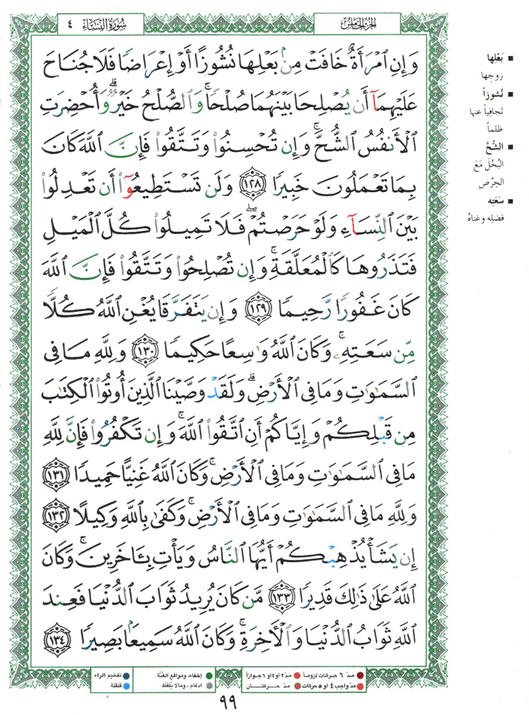 سُورَةُ النِّسَاء ٤
الجزء الخامس
وَإِنِ ٱمْرَأَةٌ خَافَتْ مِنۢ بَعْلِهَا نُشُوزًا أَوْ إِعْرَاضًا فَلَا جُنَاحَ
عَلَيْهِمَآ أَن يُصْلِحَا بَيْنَهُمَا صُلْحًا ۚ وَٱلصُّلْحُ خَيْرٌ ۗ وَأُحْضِرَتِ
ٱلْأَنفُسُ ٱلشُّحَّ ۚ وَإِن تُحْسِنُوا۟ وَتَتَّقُوا۟ فَإِنَّ ٱللَّهَ كَانَ
بِمَا تَعْمَلُونَ خَبِيرًا ١٢٨ وَلَن تَسْتَطِيعُوٓا۟ أَن تَعْدِلُوا۟
بَيْنَ ٱلنِّسَآءِ وَلَوْ حَرَصْتُمْ ۖ فَلَا تَمِيلُوا۟ كُلَّ ٱلْمَيْلِ
فَتَذَرُوهَا كَٱلْمُعَلَّقَةِ ۚ وَإِن تُصْلِحُوا۟ وَتَتَّقُوا۟ فَإِنَّ ٱللَّهَ
كَانَ غَفُورًا رَّحِيمًا ١٢٩ وَإِن يَتَفَرَّقَا يُغْنِ ٱللَّهُ كُلًّا
مِّن سَعَتِهِۦ ۚ وَكَانَ ٱللَّهُ وَٰسِعًا حَكِيمًا ١٣٠ وَلِلَّهِ مَا فِى
ٱلسَّمَٰوَٰتِ وَمَا فِى ٱلْأَرْضِ ۗ وَلَقَدْ وَصَّيْنَا ٱلَّذِينَ أُوتُوا۟ ٱلْكِتَٰبَ
مِن قَبْلِكُمْ وَإِيَّاكُمْ أَنِ ٱتَّقُوا۟ ٱللَّهَ ۚ وَإِن تَكْفُرُوا۟ فَإِنَّ لِلَّهِ
مَا فِى ٱلسَّمَٰوَٰتِ وَمَا فِى ٱلْأَرْضِ ۚ وَكَانَ ٱللَّهُ غَنِيًّا حَمِيدًا ١٣١
وَلِلَّهِ مَا فِى ٱلسَّمَٰوَٰتِ وَمَا فِى ٱلْأَرْضِ ۚ وَكَفَىٰ بِٱللَّهِ وَكِيلًا ١٣٢
إِن يَشَأْ يُذْهِبْكُمْ أَيُّهَا ٱلنَّاسُ وَيَأْتِ بِـَٔاخَرِينَ ۚ وَكَانَ
ٱللَّهُ عَلَىٰ ذَٰلِكَ قَدِيرًا ١٣٣ مَّن كَانَ يُرِيدُ ثَوَابَ ٱلدُّنْيَا فَعِندَ
ٱللَّهِ ثَوَابُ ٱلدُّنْيَا وَٱلْأَخِرَةِ ۚ وَكَانَ ٱللَّهُ سَمِيعًۢا بَصِيرًا ١٣٤
■ بَعْلِها
زوجِها
■ نُشُوزاً
تجافياً عنها
ظلماً
■ الشُّحَّ
البُخْلَ مَعَ
الحِرْصِ
■ سَعَتِهِ
فضلِهِ وغناهُ
مدّ ٦ حركات لزوماً مدّ ٢ أو ٤ أو ٦ جوازاً
مدّ واجب ٤ أو ٥ حركات مدّ حركتان
إخفاء، ومواقع الغُنَّة
إدغام، وما لا يُلفَظ
تفخيم الراء
قلقلة
٩٩